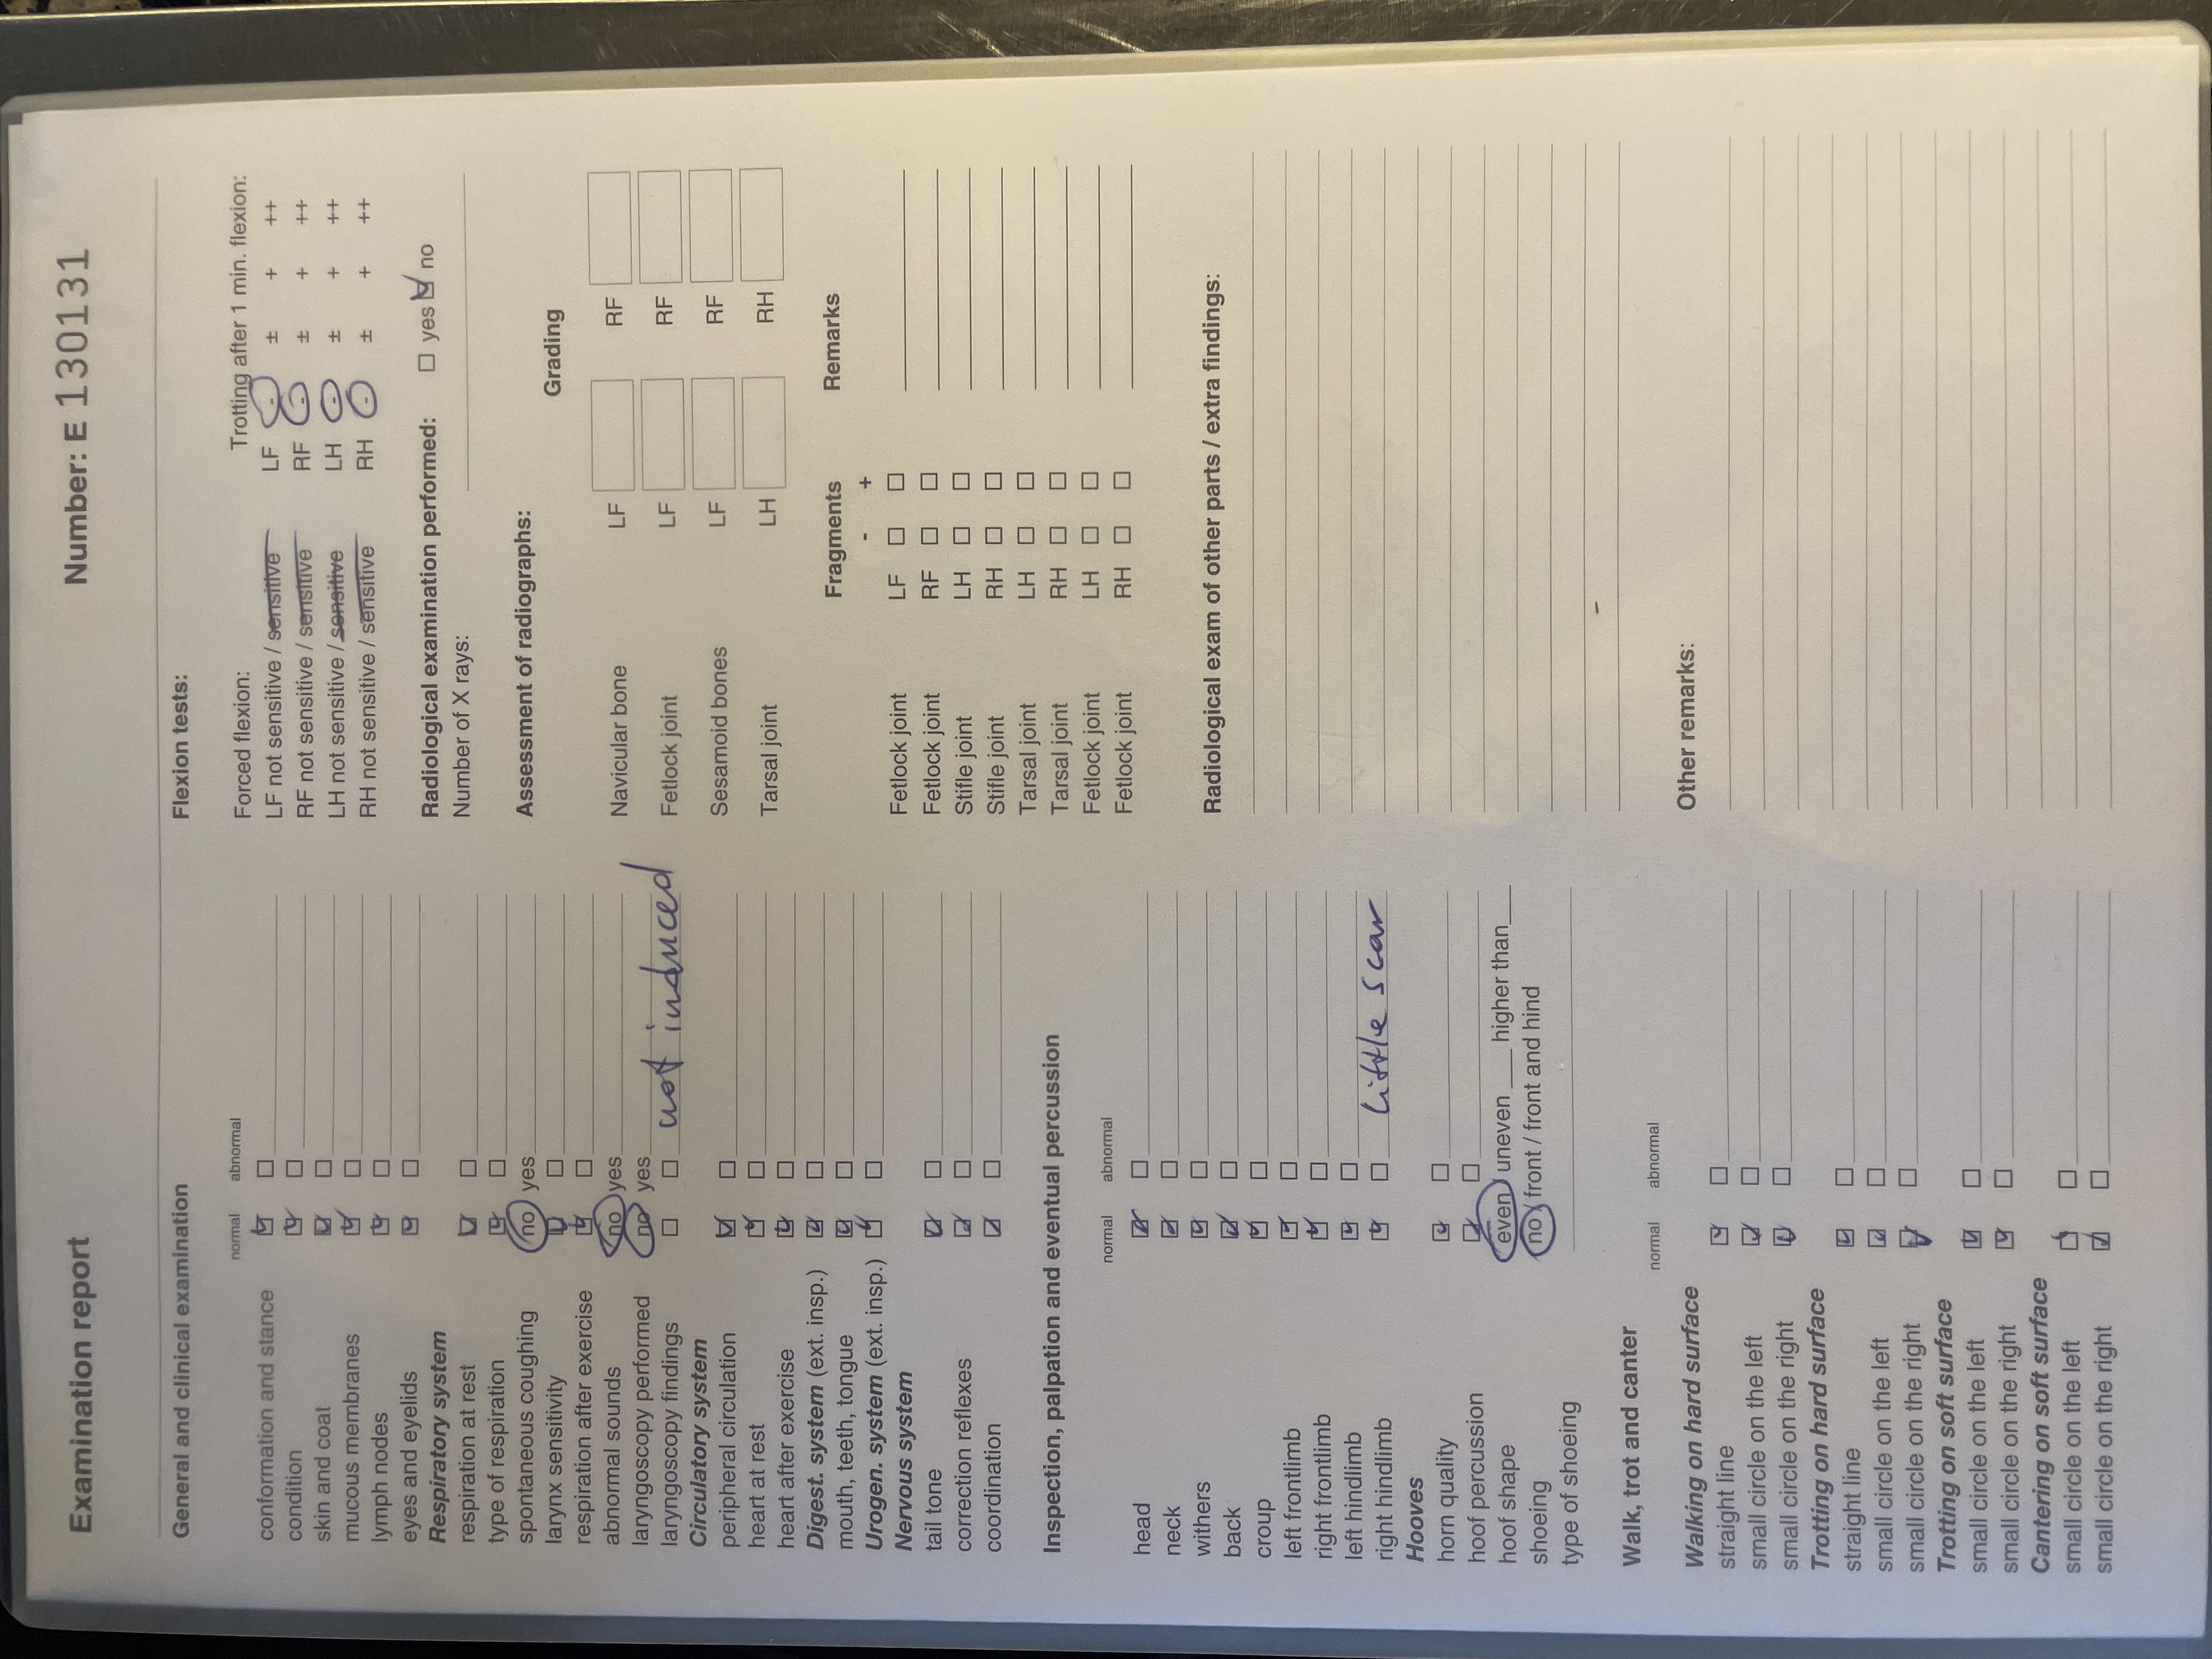 Examination report
Number: E 130131
General and clinical examination
normal abnormal
conformation and stance
condition
skin and coat
mucous membranes
lymph nodes
eyes and eyelids
Respiratory system
respiration at rest
type of respiration
spontaneous coughing no yes
larynx sensitivity
respiration after exercise
abnormal sounds no yes
laryngoscopy performed no yes
laryngoscopy findings not induced
Circulatory system
peripheral circulation
heart at rest
heart after exercise
Digest. system (ext. insp.)
mouth, teeth, tongue
Urogen. system (ext. insp.)
Nervous system
tail tone
correction reflexes
coordination
Inspection, palpation and eventual percussion
normal abnormal
head
neck
withers
back
croup
left frontlimb
right frontlimb
left hindlimb
right hindlimb little scar
Hooves
horn quality
hoof percussion
hoof shape even / uneven ___ higher than ___
shoeing no / front / front and hind
type of shoeing
Walk, trot and canter
normal abnormal
Walking on hard surface
straight line
small circle on the left
small circle on the right
Trotting on hard surface
straight line
small circle on the left
small circle on the right
Trotting on soft surface
small circle on the left
small circle on the right
Cantering on soft surface
small circle on the left
small circle on the right
Flexion tests:
Forced flexion: Trotting after 1 min. flexion:
LF not sensitive / sensitive LF - ± + ++
RF not sensitive / sensitive RF - ± + ++
LH not sensitive / sensitive LH - ± + ++
RH not sensitive / sensitive RH - ± + ++
Radiological examination performed: yes no
Number of X rays:
Assessment of radiographs: Grading
Navicular bone LF RF
Fetlock joint LF RF
Sesamoid bones LF RF
Tarsal joint LH RH
Fragments Remarks
- +
Fetlock joint LF
Fetlock joint RF
Stifle joint LH
Stifle joint RH
Tarsal joint LH
Tarsal joint RH
Fetlock joint LH
Fetlock joint RH
Radiological exam of other parts / extra findings:
Other remarks: